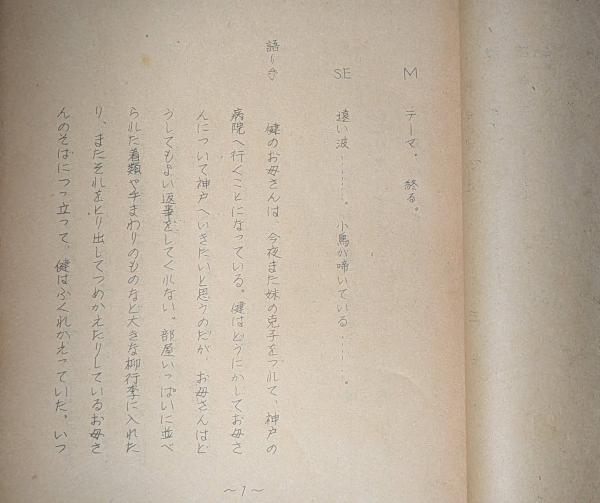 M　テーマ、　終る。
SE　遠い波……。小鳥が啼いている……。
語り手　健のお母さんは、今夜また妹の克子をつれて、神戸の
病院へ行くことになっている。健はどうにかしてお母さ
んについて神戸へいきたいと思うのだが、お母さんはど
うしてもよい返事をしてくれない。部屋いっぱいに並べ
られた着類や手まわりのものなど大きな柳行李に入れた
り、またそれをとり出してつめかえたりしているお母さ
んのそばにつっ立って、健はふくれかえっていた。いつ
～1～